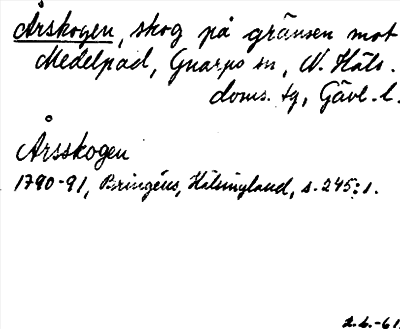 Årskogen, skog på gränsen mot
Medelpad, Gnarps sn, N. Häls.
doms. tg, Gävl. l.
Årsskogen
1790-91, Bringéus, Hälsingland, s. 245:1.
2.6.-61.